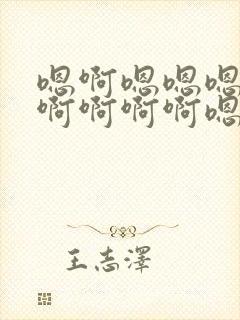 嗯啊嗯嗯嗯
啊啊啊啊嗯
王志澤